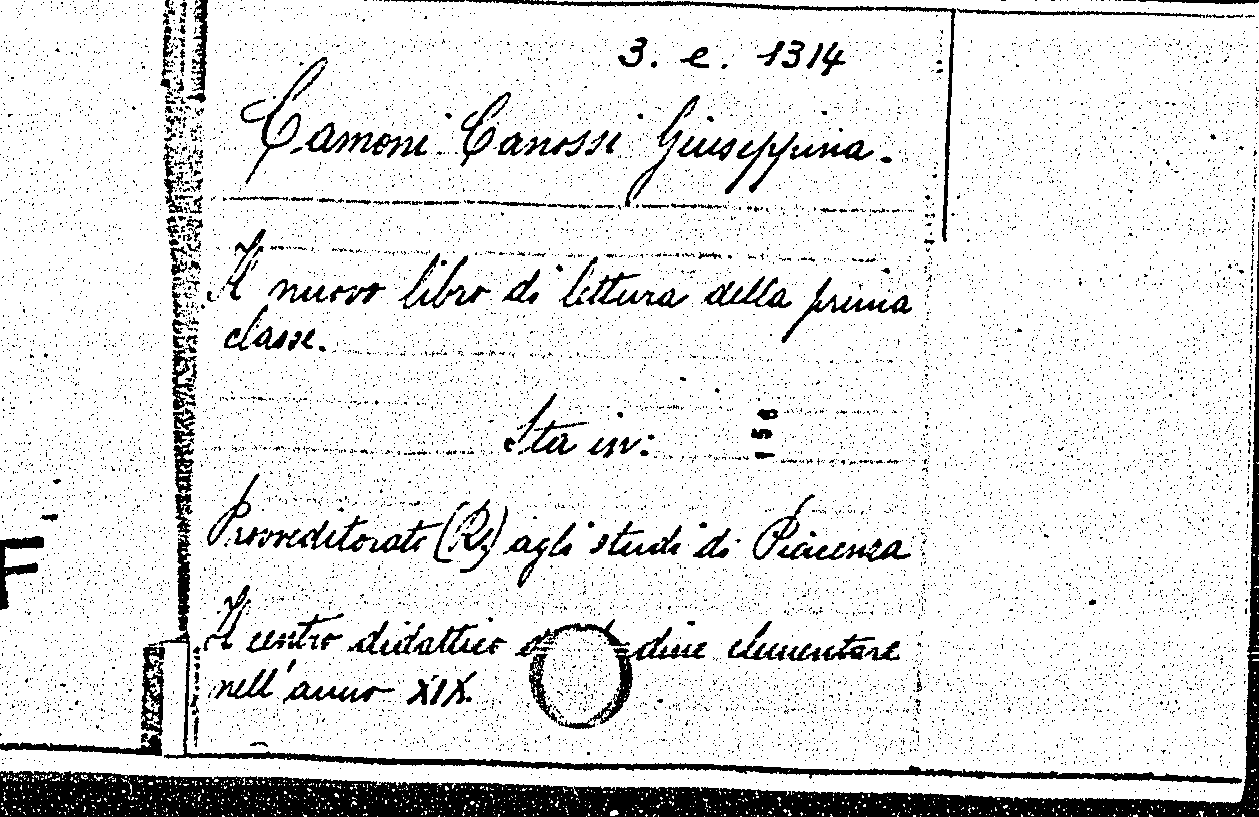 3. e. 1314
Camoni Canossi Giuseppina.
Il nuovo libro di lettura della prima
classe.
Sta in:
156
Provveditorato (R.) agli studi di Piacenza
Il centro didattico dine elementare
nell'anno XIX.
F